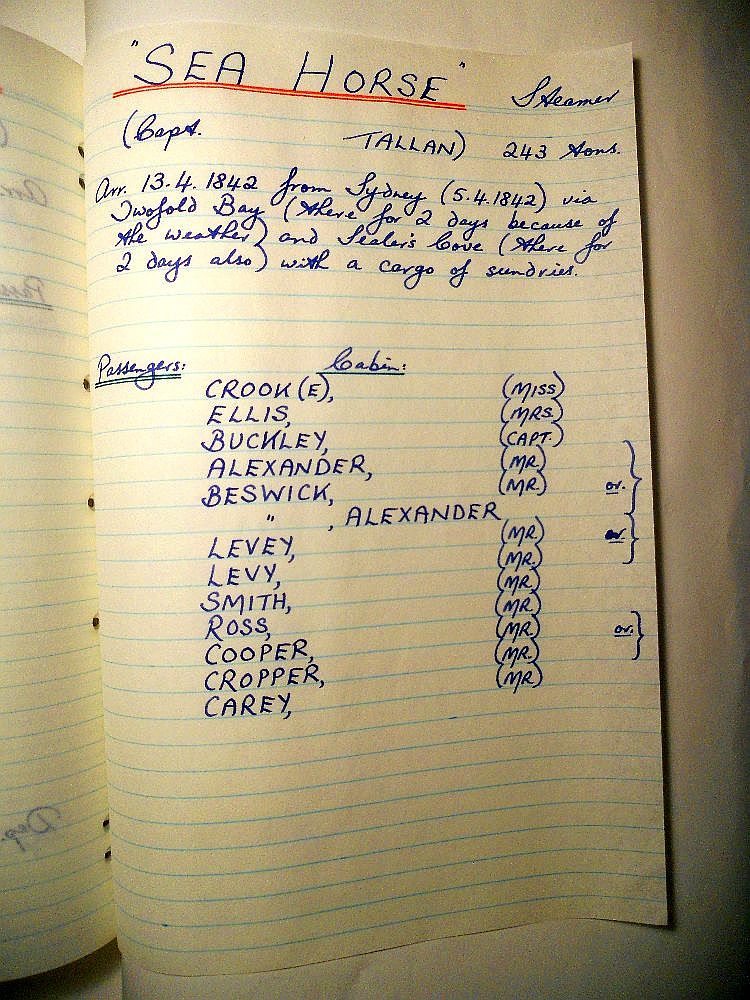 "SEA HORSE" Steamer
(Capt. TALLAN) 243 tons.
Arr. 13.4.1842 from Sydney (5.4.1842) via
Twofold Bay (there for 2 days because of
the weather) and Sealer's Cove (there for
2 days also) with a cargo of sundries.
Passengers: Cabin:
CROOK(E), (MISS)
ELLIS, (MRS.)
BUCKLEY, (CAPT.)
ALEXANDER, (MR.)
BESWICK, (MR.) or.
" , ALEXANDER
LEVEY, (MR.) or
LEVY, (MR.)
SMITH, (MR.)
ROSS, (MR.)
COOPER, (MR.) or.
CROPPER, (MR.)
CAREY, (MR.)
Dep.